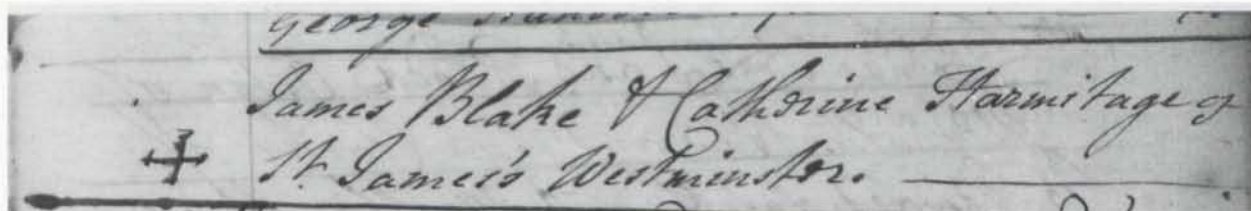 George
James Blake & Catherine Harmitage of
St. James's Westminster.